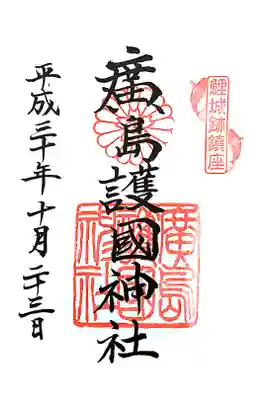 鯉城跡鎮座
廣島護國神社
廣島護國神社
平成三十年十月二十三日